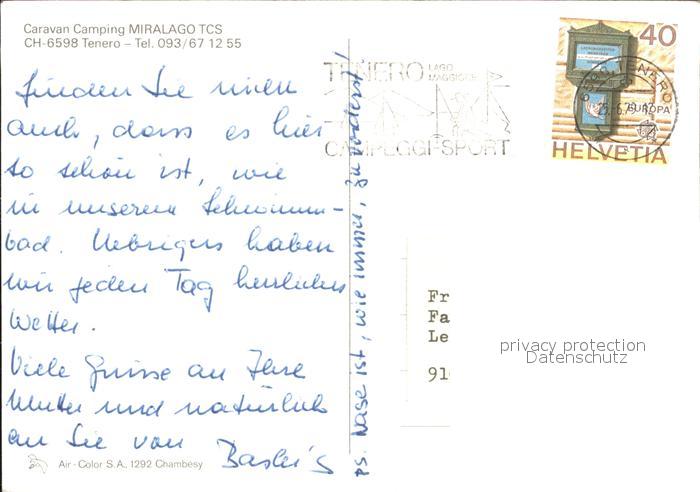 Caravan Camping MIRALAGO TCS
CH-6598 Tenero – Tel. 093/67 12 55
finden Sie nicht
auch, dass es hier
so schön ist, wie
in unserem Schwimm-
bad. Uebrigens haben
wir jeden Tag herrliches
Wetter.
Viele Grüsse an Ihre
Mutter und natürlich
an Sie von
Basler's
Air-Color S.A., 1292 Chambesy
ps. Nase ist, wie immer, zuvorderst!
TENERO LAGO
MAGGIORE
CAMPEGGI-SPORT
40
6598 TENERO
EUROPA
HELVETIA
Fr
Fa
Le
91
privacy protection
Datenschutz